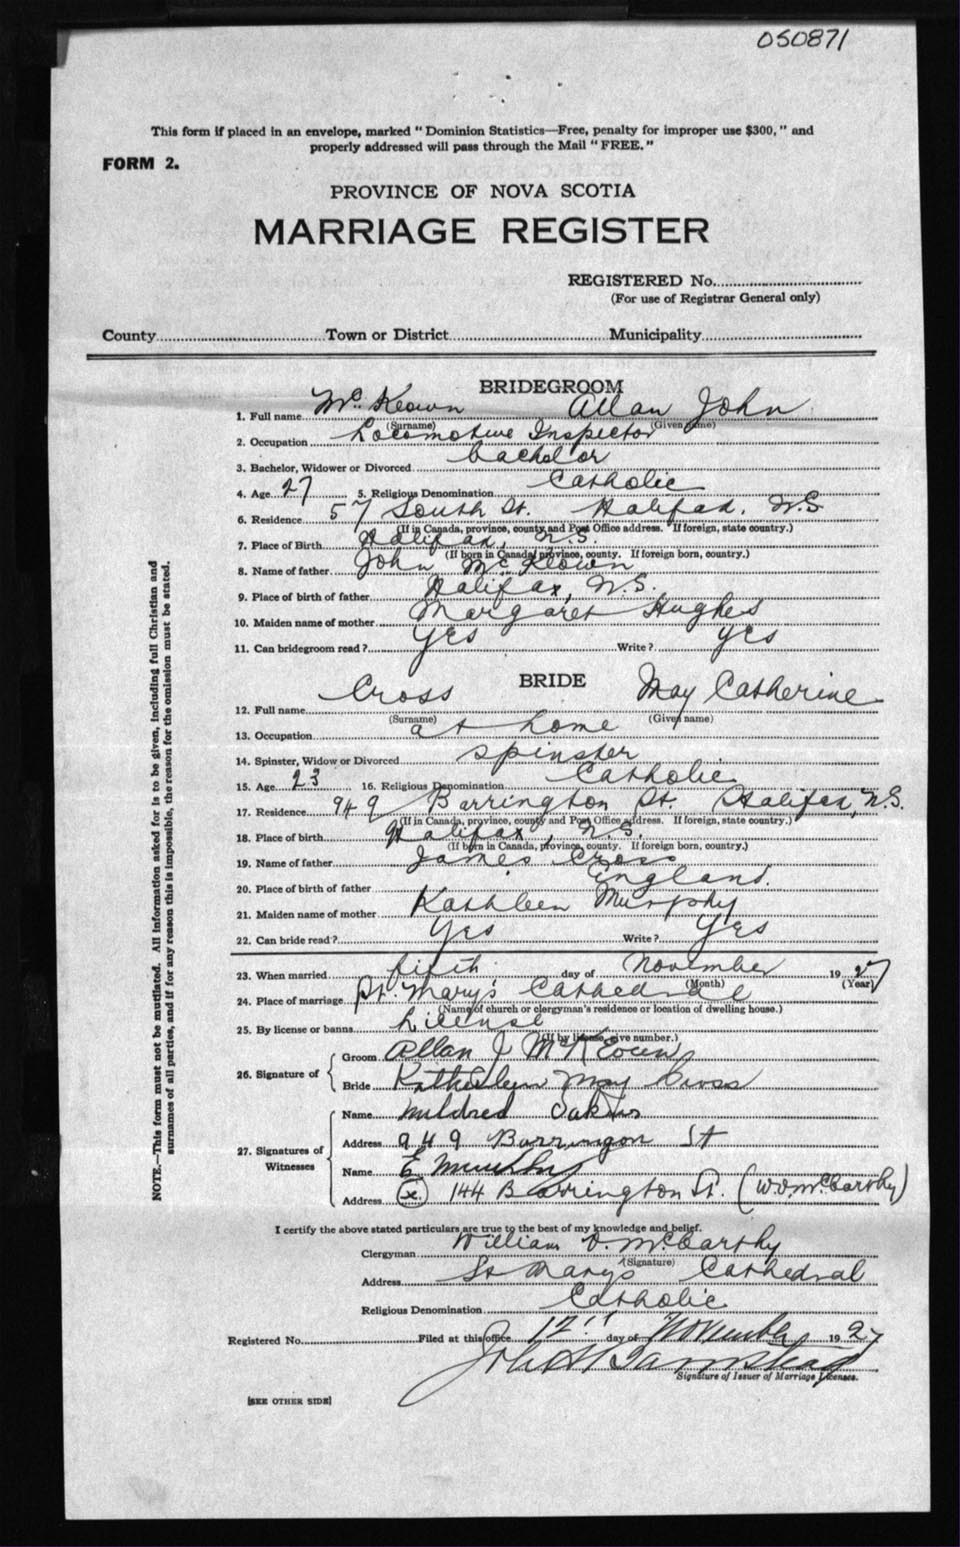 050871
This form if placed in an envelope, marked "Dominion Statistics—Free, penalty for improper use $300," and
properly addressed will pass through the Mail "FREE."
FORM 2.
PROVINCE OF NOVA SCOTIA
MARRIAGE REGISTER
REGISTERED No.
(For use of Registrar General only)
County Town or District Municipality
BRIDEGROOM
1. Full name McKeown Allan John
(Surname) (Given name)
2. Occupation Locomotive Inspector
3. Bachelor, Widower or Divorced bachelor
4. Age 27 5. Religious Denomination Catholic
6. Residence 57 South St. Halifax, N.S.
(If in Canada, province, county and Post Office address. If foreign, state country.)
7. Place of Birth Halifax, N.S.
(If born in Canada, province, county. If foreign born, country.)
8. Name of father John McKeown
9. Place of birth of father Halifax, N.S.
10. Maiden name of mother Margaret Hughes
11. Can bridegroom read? Yes Write? yes
BRIDE
12. Full name Cross May Catherine
(Surname) (Given name)
13. Occupation at home
14. Spinster, Widow or Divorced spinster
15. Age 23 16. Religious Denomination Catholic
17. Residence 949 Barrington St. Halifax, N.S.
(If in Canada, province, county and Post Office address. If foreign, state country.)
18. Place of birth Halifax, N.S.
(If born in Canada, province, county. If foreign born, country.)
19. Name of father James Cross
20. Place of birth of father England.
21. Maiden name of mother Kathleen Murphy
22. Can bride read? Yes Write? Yes
23. When married fifth day of November 1927
(Month) (Year)
24. Place of marriage St. Mary's Cathedral
(Name of church or clergyman's residence or location of dwelling house.)
25. By license or banns License
(If by license, give number.)
26. Signature of Groom Allan J McKeown
Bride Kathleen May Cross
27. Signatures of Witnesses
Name Mildred
Address 949 Barringon St
Name E Murphy
Address (x) 144 Barrington St. (W.D. McCarthy)
I certify the above stated particulars are true to the best of my knowledge and belief.
Clergyman William D. McCarthy
(Signature)
Address St Marys Cathedral
Religious Denomination Catholic
Registered No. Filed at this office 12" day of November 1927
Signature of Issuer of Marriage Licenses.
[SEE OTHER SIDE]
NOTE.—This form must not be mutilated. All information asked for is to be given, including full Christian and
surnames of all parties, and if for any reason this is impossible, the reason for the omission must be stated.